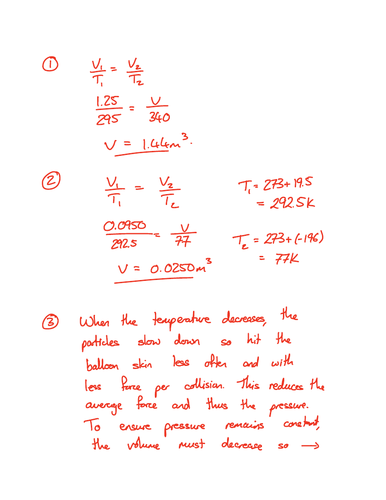 ①
V₁/T₁ = V₂/T₂
1.25/295 = V/340
V = 1.44m³.
②
V₁/T₁ = V₂/T₂
T₁ = 273+19.5
= 292.5K
0.0950/292.5 = V/77
T₂ = 273+(-196)
= 77K
V = 0.0250m³
③ When the temperature decreases, the
particles slow down so hit the
balloon skin less often and with
less force per collision. This reduces the
average force and thus the pressure.
To ensure pressure remains constant,
the volume must decrease so →